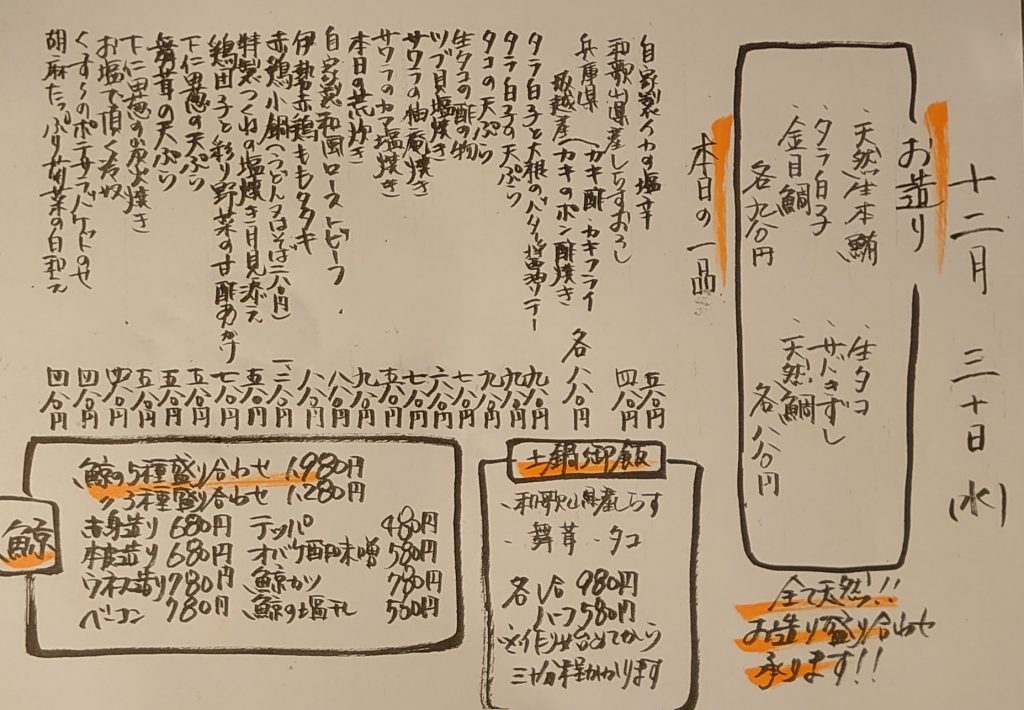 十二月 三十日 (水)
お造り
・天然生本鮪
・タラ白子
・金目鯛
各九八〇円
・生タコ
・サバきずし
・天然鯛
各八八〇円
全て天然!!
お造り盛り合わせ
承ります!!
本日の一品
自家製イカの塩辛 五八〇円
和歌山県産しらすおろし 四八〇円
兵庫県 坂越産 カキ酢・カキフライ
カキのポン酢焼き 各八八〇円
タラ白子と大根のバター醤油ソテー 九八〇円
タラ白子の天ぷら 九八〇円
タコの天ぷら 九八〇円
生タコの酢の物 七八〇円
ツブ貝塩焼き 六八〇円
サワラの柚庵焼き 七八〇円
サワラのカマ塩焼き 五八〇円
本日の荒炊き 九八〇円
自家製和風ローストビーフ 八八〇円
伊勢赤鶏ももタタキ 八八〇円
赤鶏小鍋(うどん又はそば二八〇円) 一、二八〇円
特製つくねの塩焼き月見添え 五八〇円
鶏団子と彩り野菜の甘酢あんかけ 七八〇円
下仁田葱の天ぷら 五八〇円
舞茸の天ぷら 五八〇円
下仁田葱の炭火焼き 五八〇円
お塩で頂く冷奴 四八〇円
くずし〜のポテサラバケットのせ 四八〇円
胡麻たっぷり菊菜の白和え 四八〇円
土鍋御飯
・和歌山県産しらす
・舞茸 ・タコ
各1合 980円
ハーフ 580円
※作り始めてから
三十分程かかります
鯨
鯨の5種盛り合わせ 1,980円
〃3種盛り合わせ 1,280円
赤身造り 680円 テッパ 480円
本皮造り 680円 オバケ酢味噌 580円
ウネス造り 780円 鯨カツ 780円
ベーコン 780円 鯨の塩干し 580円